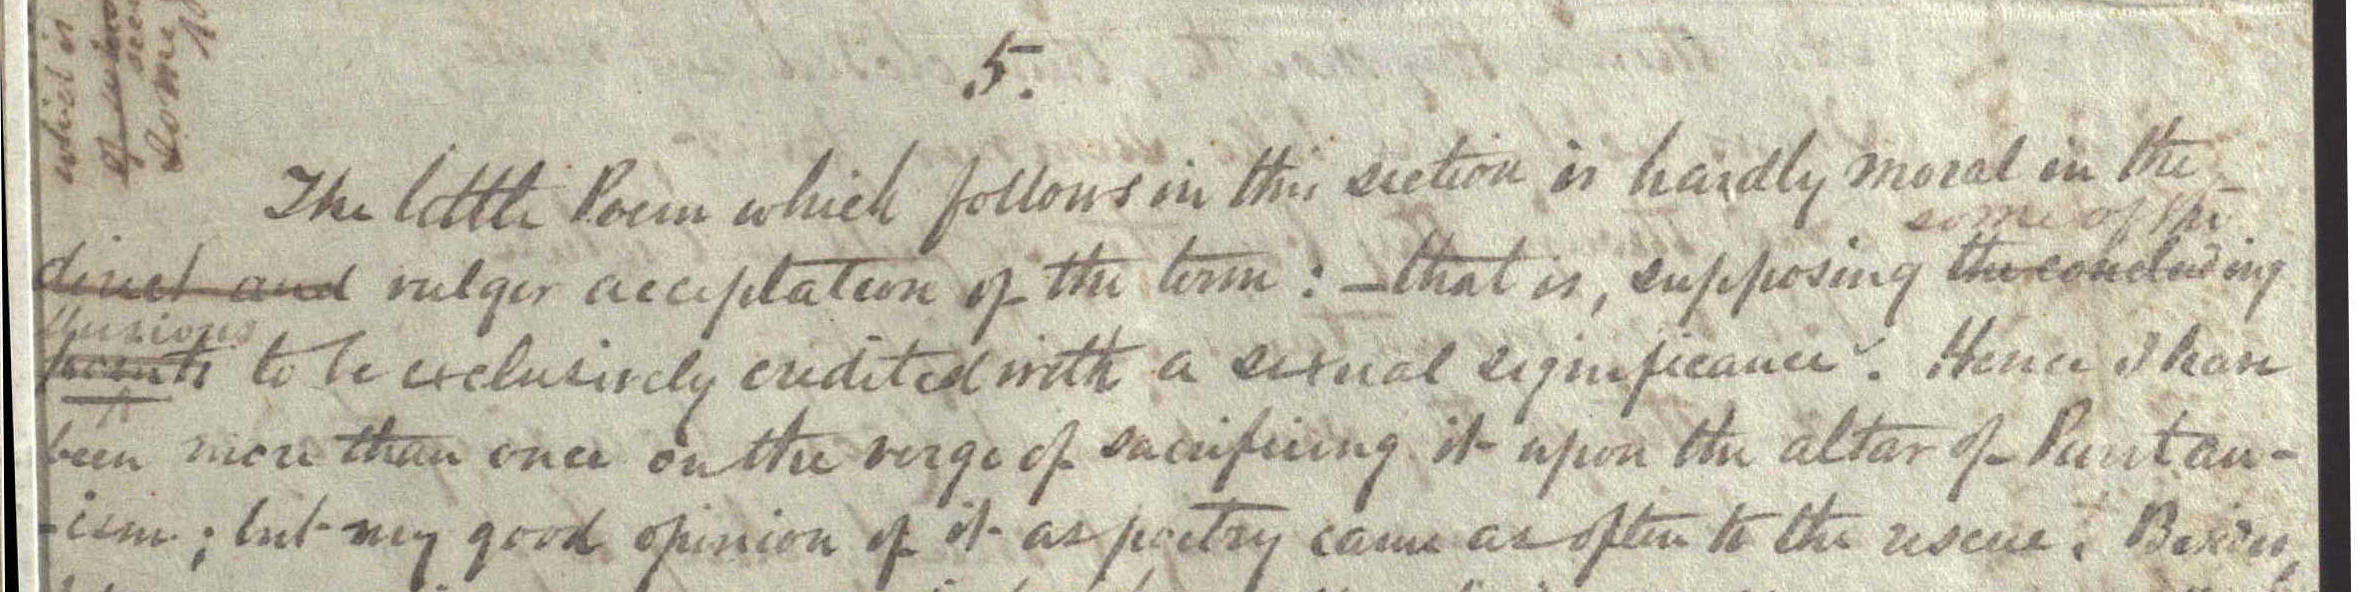 5.
The little Poem which follows in this section is hardly moral in the
some of the
direct and vulgar acceptation of the term : — that is, supposing the concluding
allusions
points to be exclusively credited with a sexual significance. Hence I have
been more than once on the verge of sacrificing it upon the altar of Puritan-
-ism ; but my good opinion of it as poetry came as often to the rescue. Besides,
which is
some